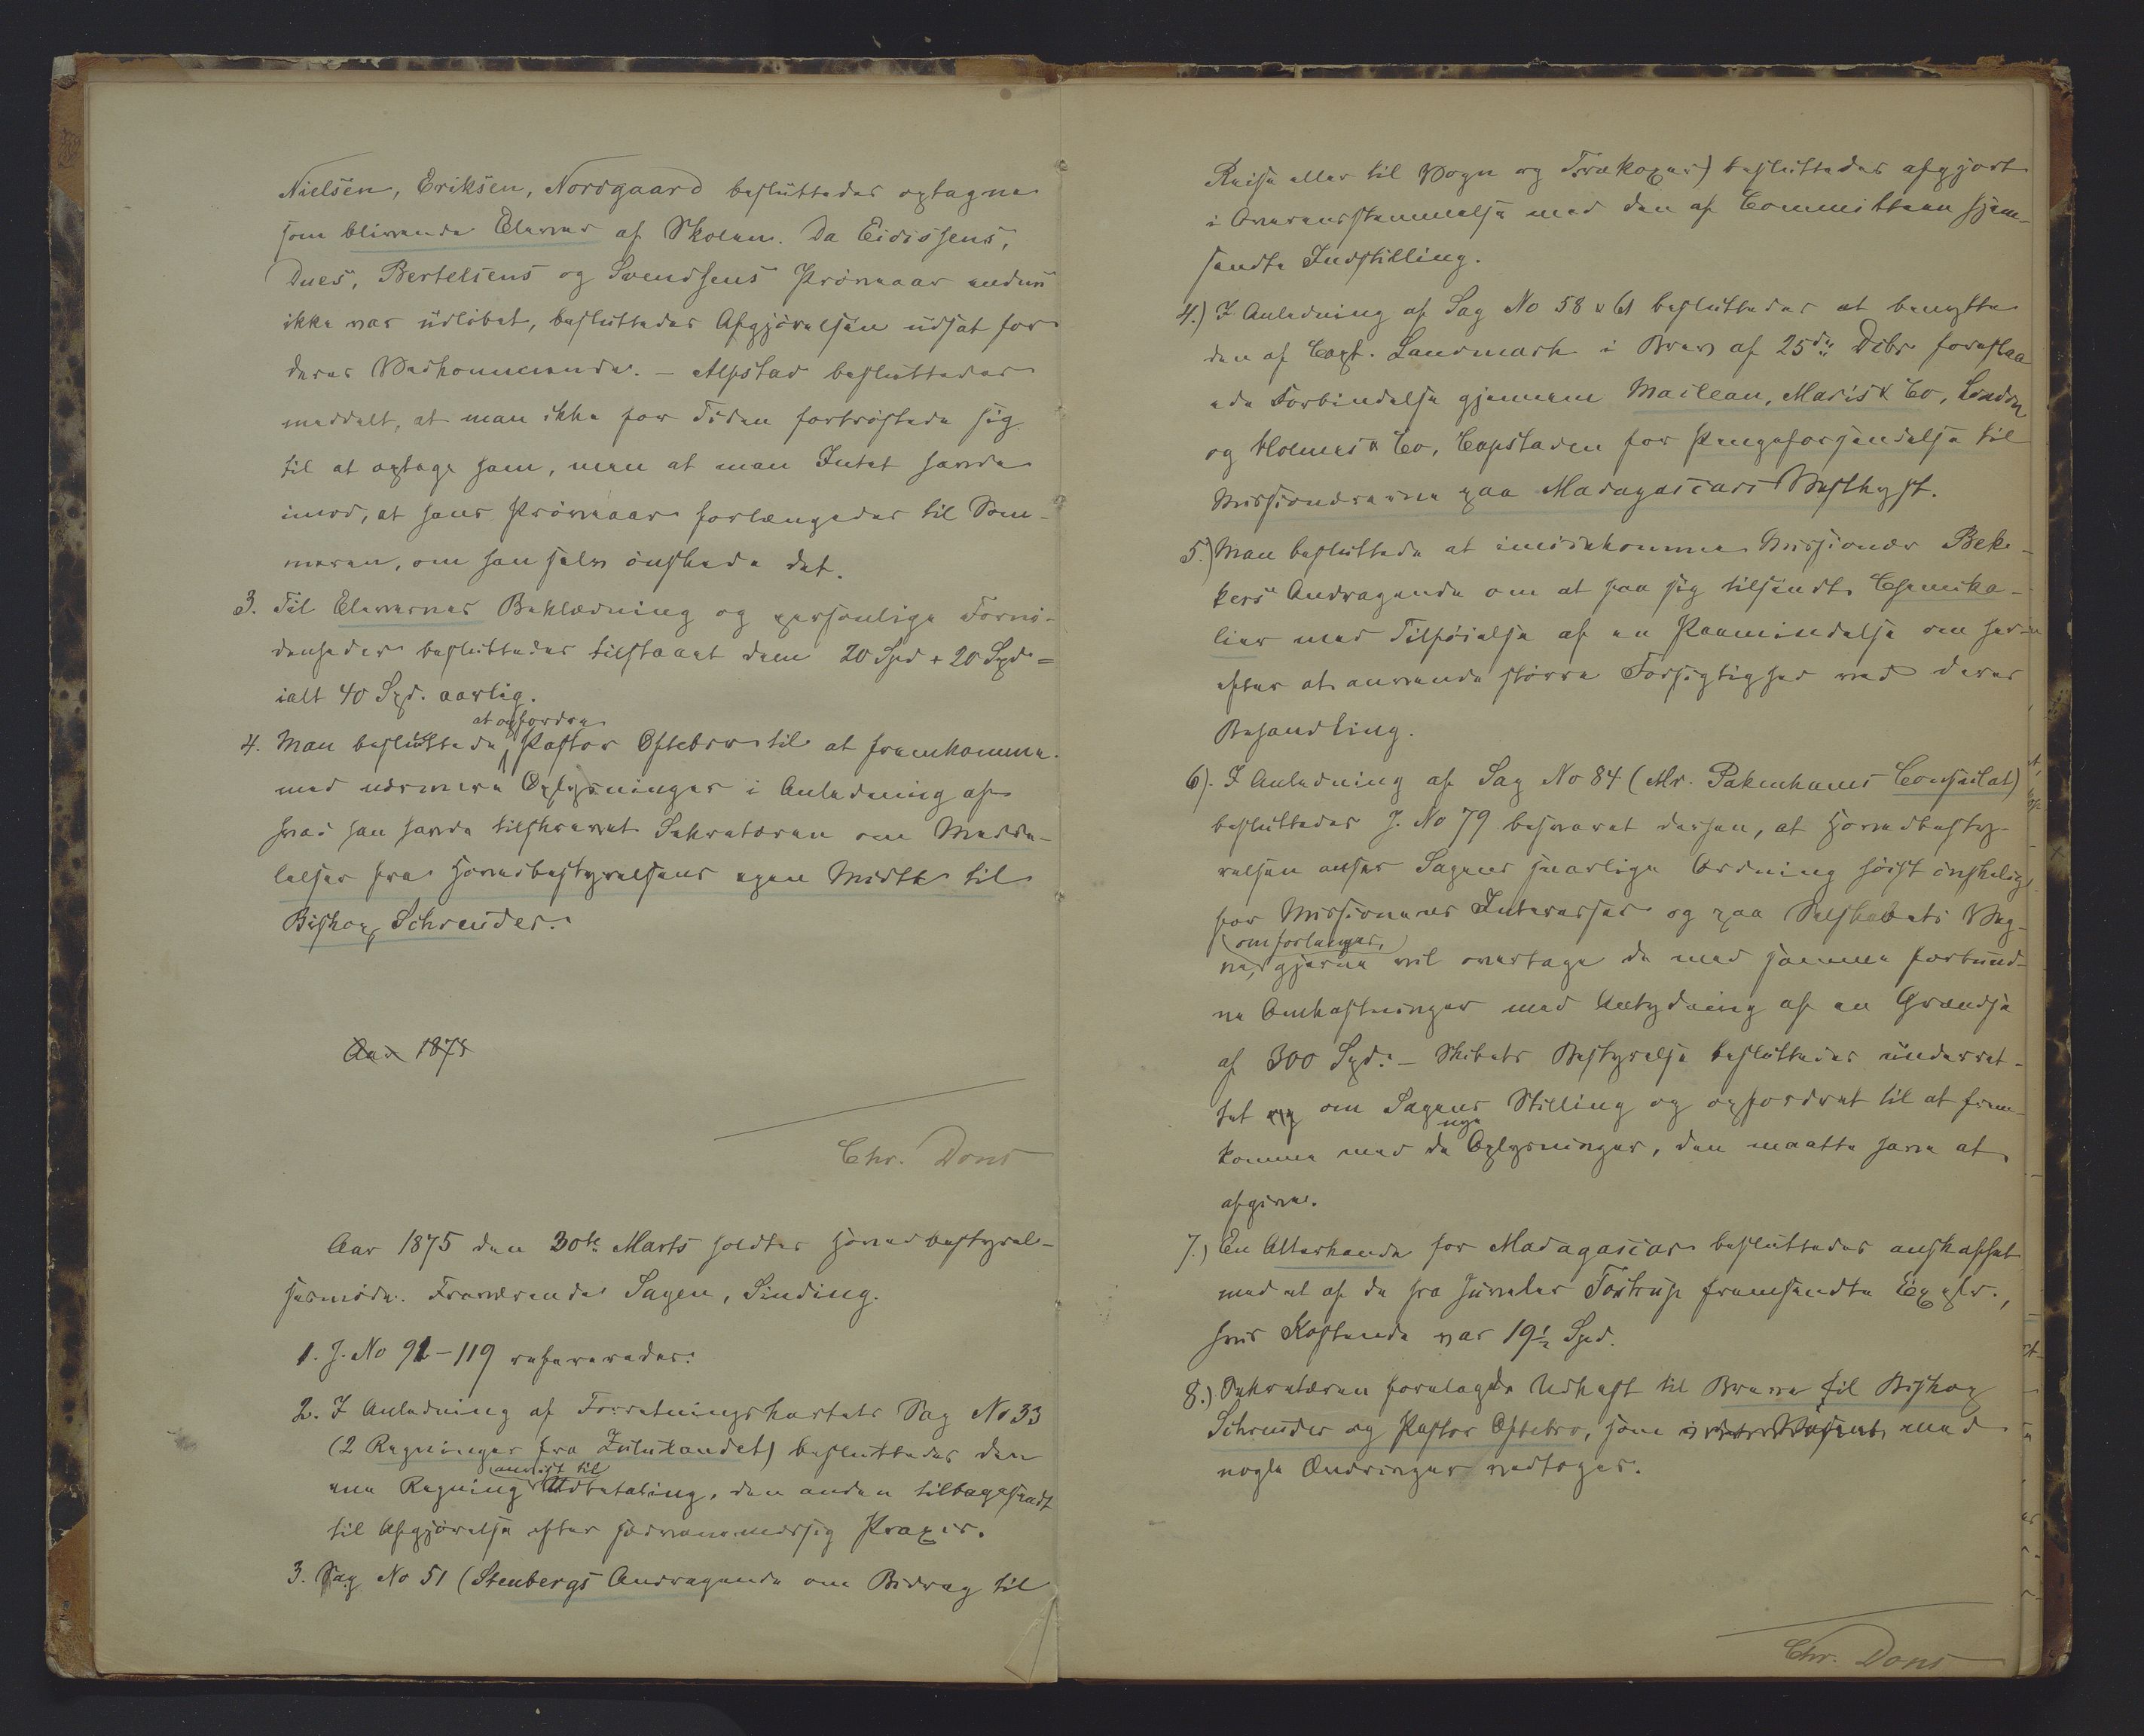 Nielsen, Eriksen, Nordgaard besluttedes optagne
som blivende Elever af Skolen. Da Eidissens,
Dues, Bertelsens og Svendsens Prøveaar endnu
ikke var udløbet, besluttedes Afgjørelsen udsat for
deres Vedkommende. – Alfstad besluttedes
meddelt, at man ikke for Tiden fortrøstede sig
til at optage ham, men at man Intet havde
imod, at hans Prøveaar forlængedes til Som-
meren, om han selv ønskede det.
3. Til Elevernes Beklædning og personlige Fornø-
denheder besluttedes tilstaaet dem 20 Spd + 20 Spd =
ialt 40 Spd. aarlig.
at opfordre
4. Man besluttede Pastor Oftebro til at fremkomme
med nærmere Oplysninger i Anledning af
hvad han havde tilskrevet Sekretæren om Medde-
lelser fra Hovedbestyrelsens egen Midte til
Biskop Schreuder.
Aar 1875
Chr. Dons
Aar 1875 den 30te Marts holdtes Hovedbestyrel-
sesmøde. Fraværende Sagen, Sinding.
1. J. No 91–119 refereredes.
2. I Anledning af Forretningskartets Sag No 33
(2 Regninger fra Zululandet) besluttedes den
anvist til
ene Regning Udbetaling, den anden tilbagesendt
til Afgjørelse efter sædvanemessig Praxis.
3. Sag No 51 (Stenbergs Andragende om Bidrag til
Reise eller til Vogn og Trækoxer) besluttedes afgjort
i Overensstemmelse med den af Committeen hjem-
sendte Indstilling.
4.) I Anledning af Sag No 58 & 61 besluttedes at benytte
den af Capt. Landmark i Brev af 25de Dcbr foreslaa
ede Forbindelse gjennem Mailean, Maris & Co, London
og Holmes & Co, Capstaden for Pengeforsendelse til
Missionærerne paa Madagascars Vestkyst.
5.) Man besluttede at imødekomme Missionær Bek-
kers Andragende om at faa sig tilsendt Chemika-
lier med Tilføielse af en Paamindelse om her-
efter at anvende større Forsigtighed ved deres
Behandling.
6). I Anledning af Sag No 84 (Mr. Pakenhams Consulat)
besluttedes J. No 79 besvaret derhen, at Hovedbesty-
relsen anser Sagens snarlige Ordning høist ønskelig
for Missionens Interesser og paa Selskabets Veg-
(om forlanges,)
ne, gjerne vil overtage de med samme forbund-
ne Omkostninger med Antydning af en Grændse
af 300 Spd. – Skibets Bestyrelse besluttedes underret-
tet og om Sagens Stilling og opfordret til at frem-
nye
komme med de Oplysninger, den maatte have at
afgive.
7.) En Alterkande for Madagascar besluttedes anskaffet
med et af de fra Juveler Tostrup fremsendte Expl.,
hvis Kostende var 19½ Spd.
8.) Sekretæren forelagde Udkast til Breve til Biskop
Schreuder og Pastor Oftebro, som med
nogle Ændringer vedtoges.
Chr. Dons